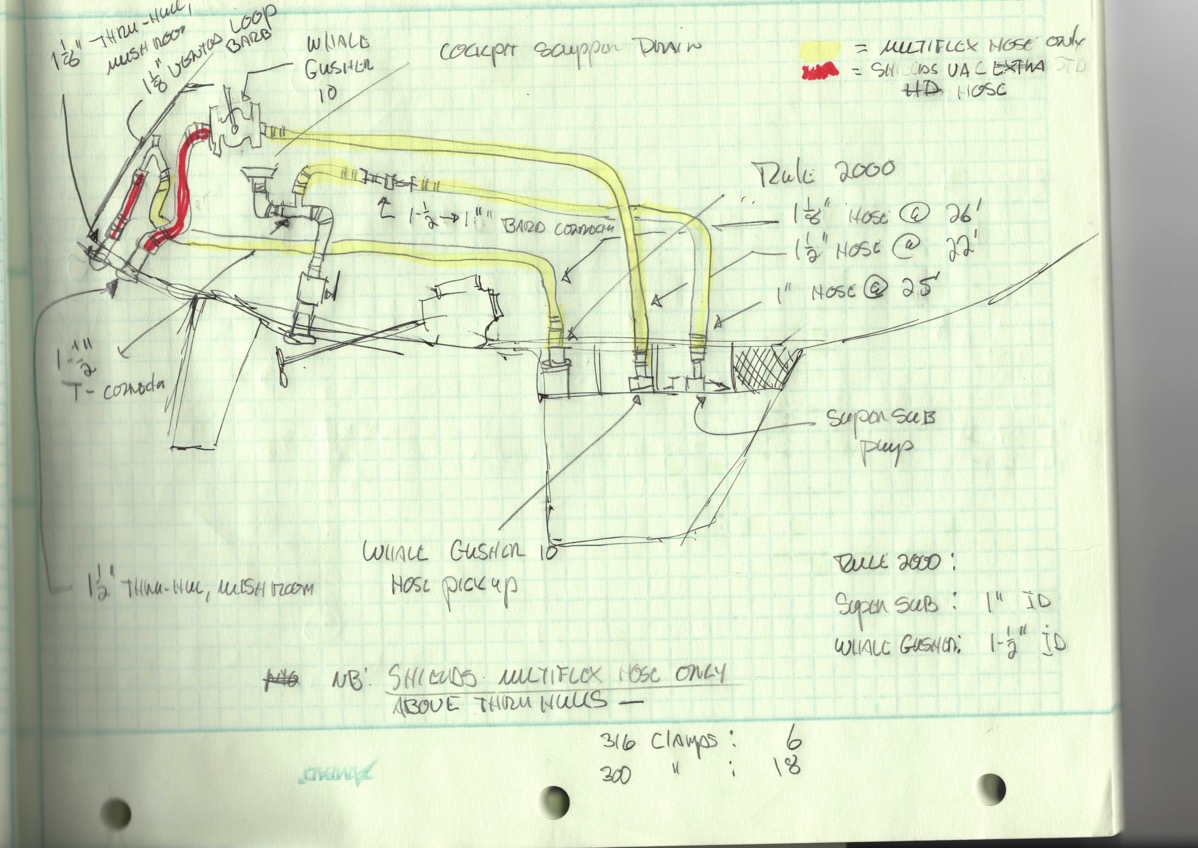 1⅛" THRU-HULL,
MUSHROOM
1⅛" VENTED LOOP
BARB
WHALE
GUSHER
10
COCKPIT SCUPPER DRAIN
= MULTIFLEX HOSE ONLY
= SHIELDS VAC EXTRA STD
HD HOSE
RULE 2000
1⅛" HOSE @ 26'
1½" HOSE @ 22'
1" HOSE @ 25'
1-½ → 1⅛" BARB CONNECTOR
1-½"
T-CONNECTOR
SUPER SUB
PUMP
WHALE GUSHER 10
HOSE PICKUP
1½" THRU-HULL, MUSHROOM
RULE 2000:
SUPER SUB: 1" ID
WHALE GUSHER: 1-½" ID
NB: SHIELDS MULTIFLEX HOSE ONLY
ABOVE THRU HULLS —
316 CLAMPS: 6
300 " : 18
AMPAD